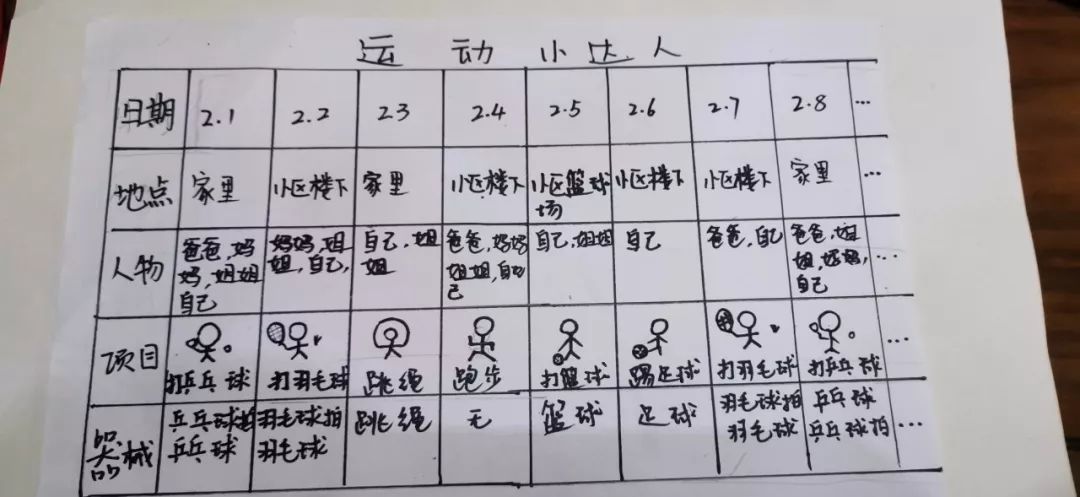 运动小达人
日期
2.1
2.2
2.3
2.4
2.5
2.6
2.7
2.8
...
地点
家里
小区楼下
家里
小区楼下
小区篮球
场
小区楼下
小区楼下
家里
...
人物
爸爸,妈
妈,姐姐
自己
妈妈,姐
姐,自己,
自己,姐
姐
爸爸,妈妈
姐姐,自
己
自己,姐姐
自己
爸爸,自己
爸爸,姐
姐,妈妈,
自己
...
项目
打乒乓球
打羽毛球
跳绳
跑步
打篮球
踢足球
打羽毛球
打乒乓球
...
器械
乒乓球拍
乒乓球
羽毛球拍
羽毛球
跳绳
无
篮球
足球
羽毛球拍
羽毛球
乒乓球
乒乓球拍
...